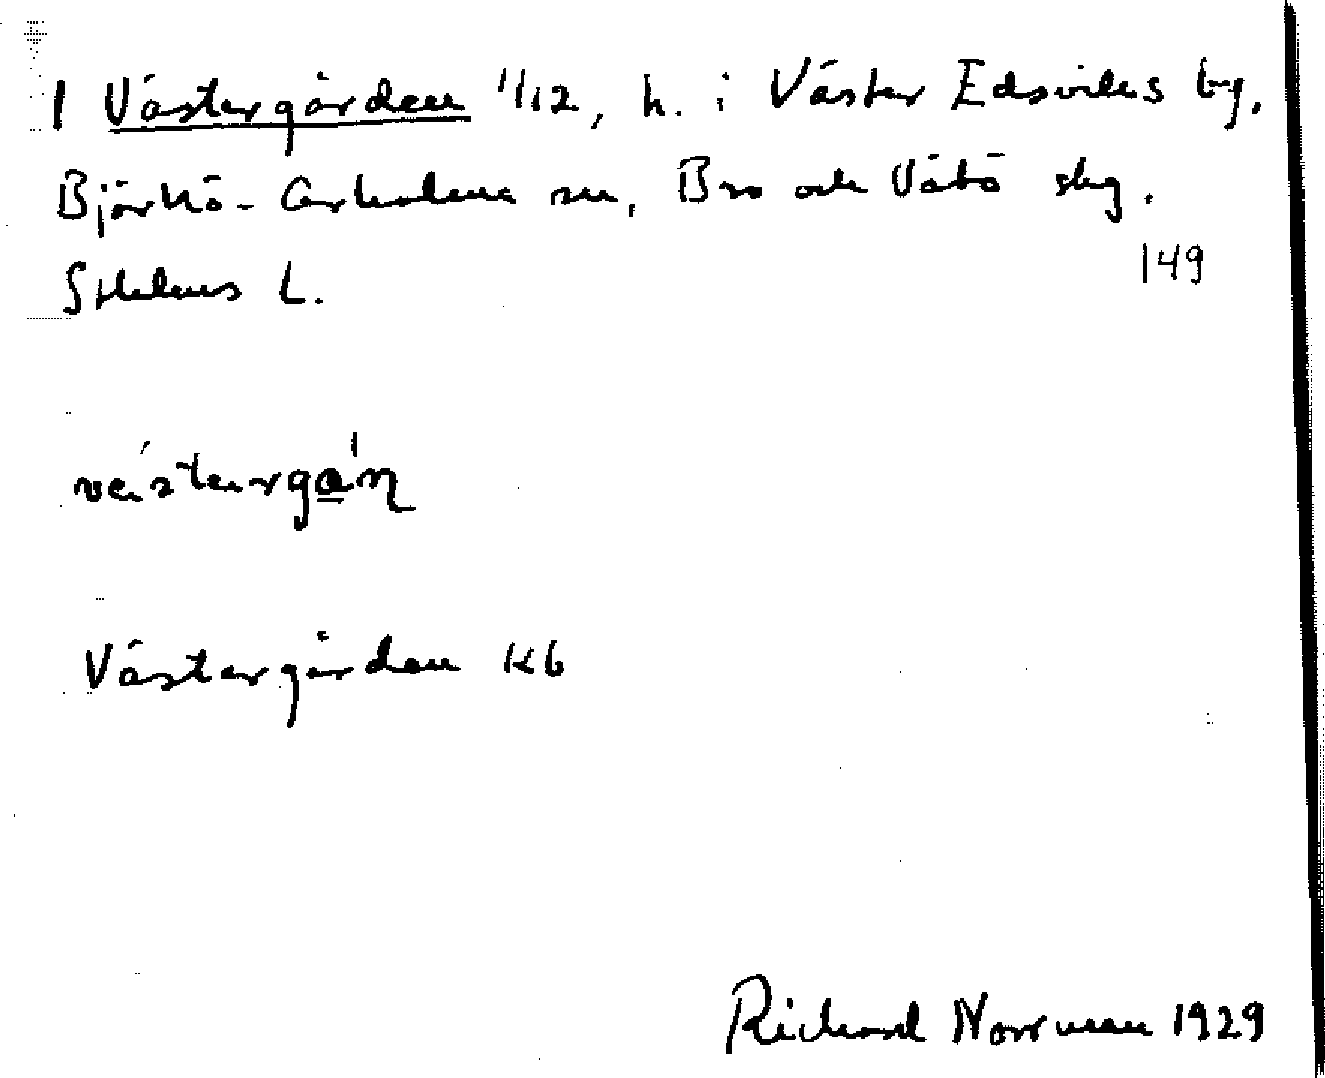 1 Västergården 1/12, h. i Väster Edsvikens by,
Björkö-Arholma sn, Bro och Vätö skg.
Sthlms L.
149
västərgɑ́ɳ
Västergården Kb
Richard Norrman 1929